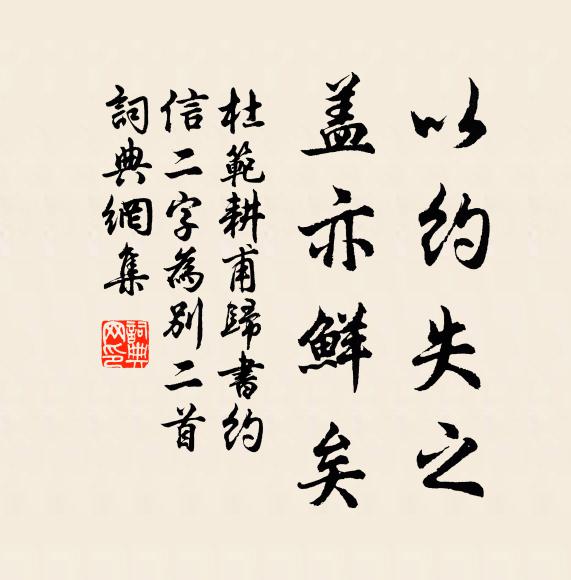 以约失之
盖亦鲜矣
杜範耕甫歸書约
信二字為别二首
詞典網集
詞典网印